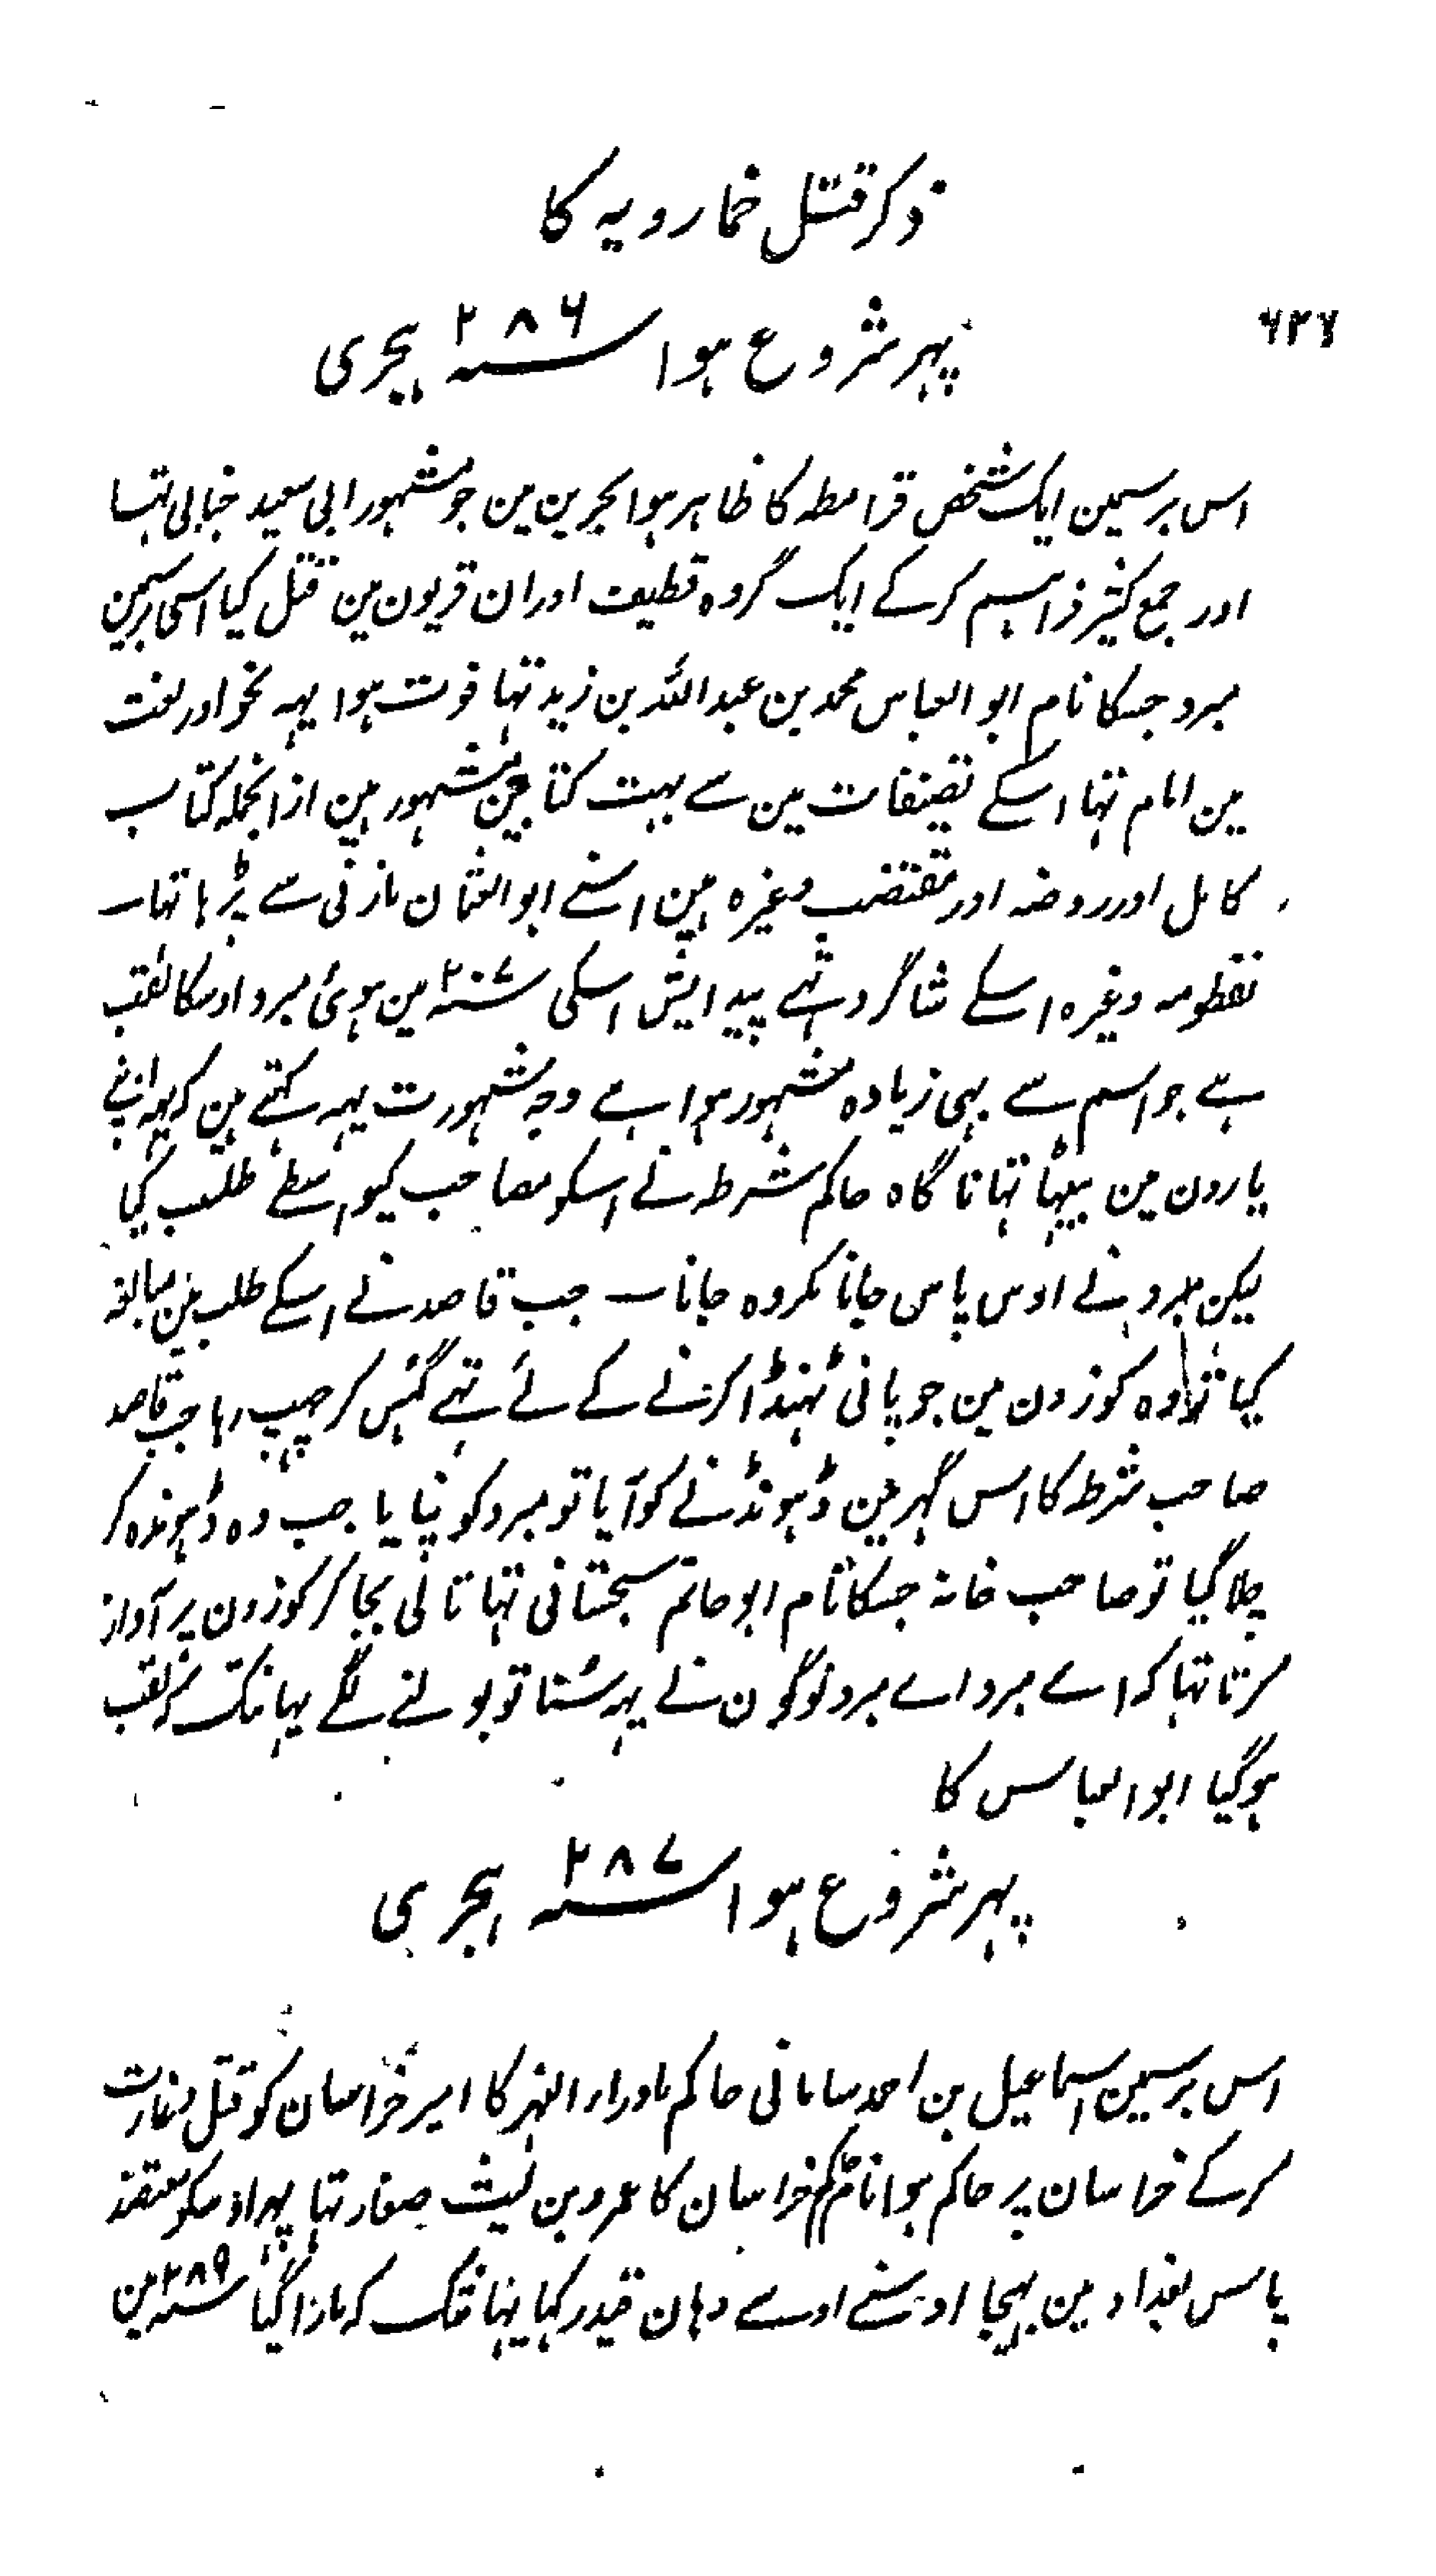 ذکر قتل خمارویہ کا
۶۲۷
پہر شروع ہوا سنہ ۲۸۶ ہجری
اس برسمین ایک شخص قرامطہ کا ظاہر ہوا بحرین مین جو مشہور ابی سعید جنابی تہا
اور جمع کثیر فراہم کرکے ایک گروہ قطیف اور ان قریون مین قتل کیا اسی برسمین
مبرد جسکا نام ابو العباس محمد بن عبداللہ بن زید تہا فوت ہوا یہہ نحو اور لغت
مین امام تہا اسکے تصنفات مین سے بہت کتابین مشہور ہین ازانجملہ کتاب
کامل اور روضہ اور مقتضب وغیرہ ہین اسنے ابو العثمان مازنی سے پڑہا تہا۔
نفطویہ وغیرہ اسکے شاگرد تہے پیدایش اسکی سنہ ۲۰۷ مین ہوئی مبرد اوسکا لقب
ہے جو اسم سے بہی زیادہ مشہور ہوا ہے وجہ شہورت یہہ کہتے ہین کہ یہہ اپنے
یارون مین بیٹہا تہا ناگاہ حاکم شرطہ نے اسکو مصاحب کیواسطے طلب کیا
لیکن مبرد نے اوس پاس جانا مکروہ جانا۔ جب قاصد نے اسکے طلب مین مبالغہ
کیا تو وہ کوزون مین جو پانی ٹہنڈا کرنے کے لئے تہے گہس کر چہپ رہا جب قاصد
صاحب شرطہ کا اس گہر مین ڈہونڈنے کو آیا تو مبرد کو نپایا جب وہ ڈہونڈہ کر
چلا گیا تو صاحب خانہ جسکا نام ابو حاتم سجستانی تہا تالی بجا کر کوزون پر آواز
کرتا تہا کہ اے مبرد اے مبرد لوگون نے یہہ سُنا تو بولنے لگے یہانتک کہ لقب
ہو گیا ابو العباس کا
پہر شروع ہوا سنہ ۲۸۷ ہجری
اس برسمین اسماعیل بن احمد سامانی حاکم ماوراء النہر کا امیر خراسان کو قتل وغارت
کرکے خراسان پر حاکم ہوا خراسان کا عمرو بن لیث صفار تہا پہر اوسکو معتضد
پاس بغداد مین بہیجا اوسنے اوسے وہان قید رکہا یہانتک کہ مارا گیا سنہ ۲۸۹ مین